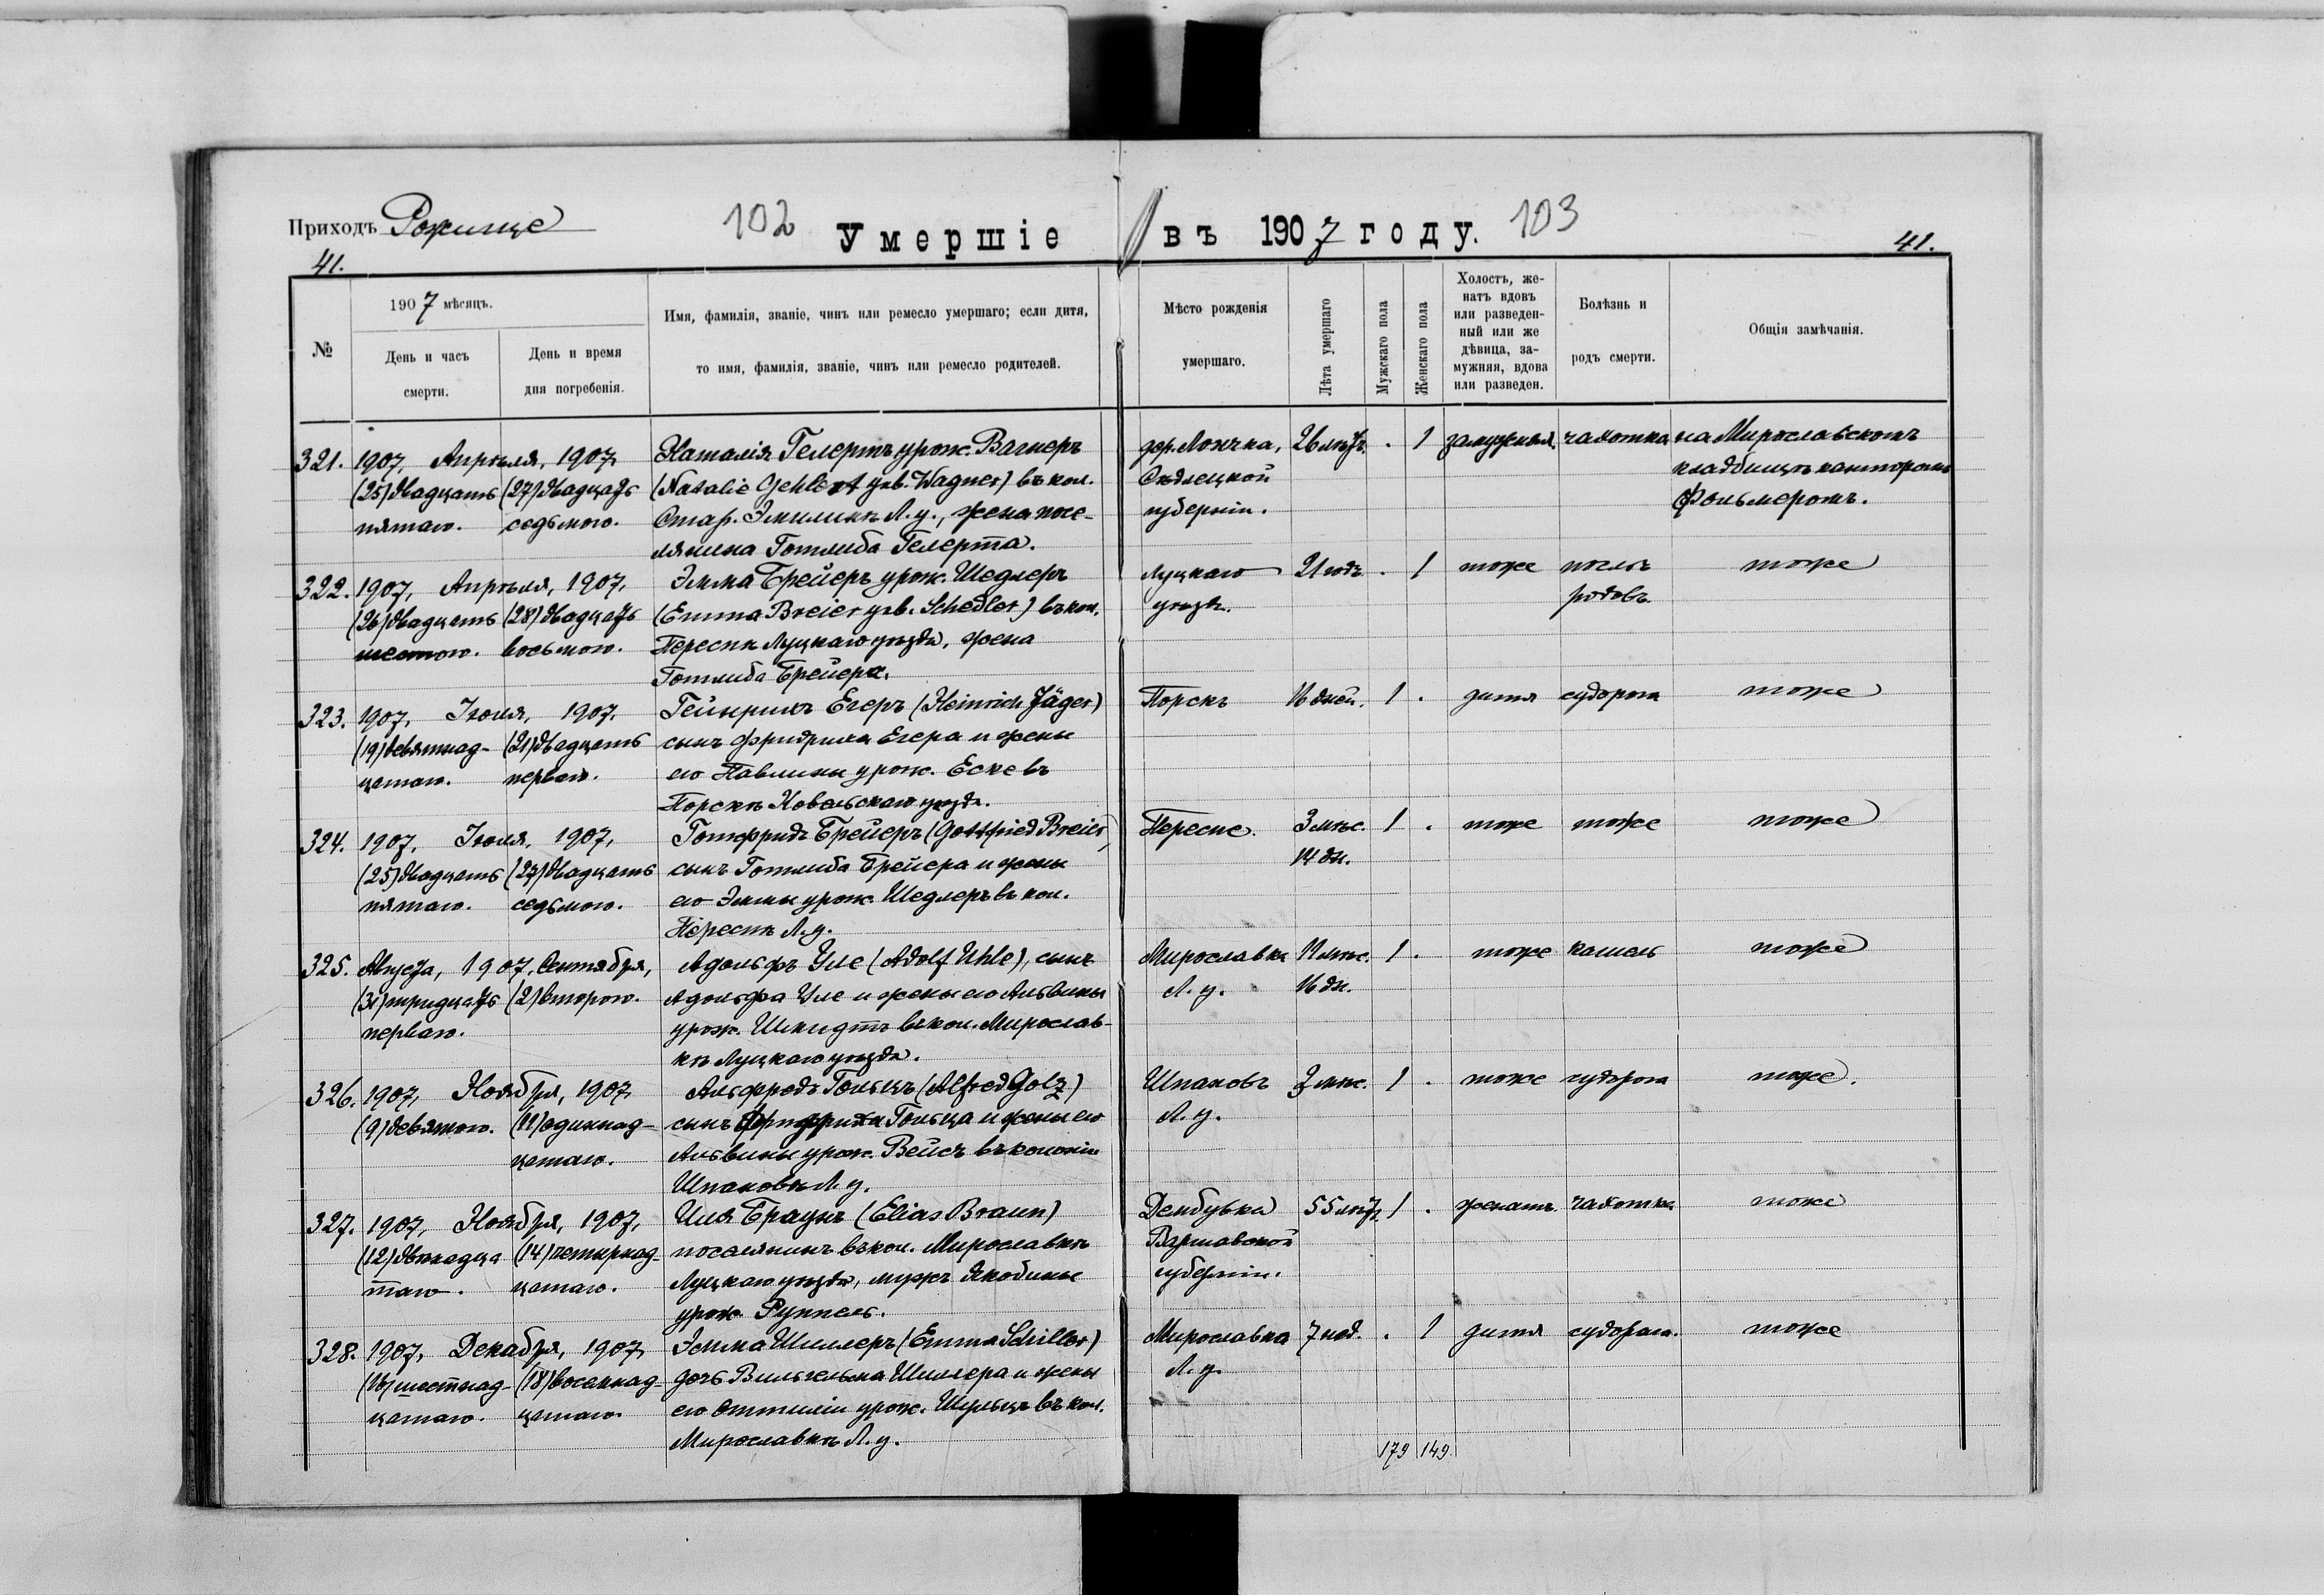 Приходъ Рожище
102
Умершіе
въ 1907 году.
103
41.
41.
№
1907 мѣсяцъ.
День и часъ смерти.
День и время дня погребенія.
Имя, фамилія, званіе, чинъ или ремесло умершаго; если дитя,
то имя, фамилія, званіе, чинъ или ремесло родителей.
Мѣсто рожденія
умершаго.
Лѣта умершаго
Мужскаго пола
Женскаго пола
Холостъ, же-
натъ вдовъ
или разведен-
ный или же
дѣвица, за-
мужняя, вдова
или разведен.
Болѣзнь и
родъ смерти.
Общія замѣчанія.
321. 1907, Апрѣля, 1907, Наталія Гелертъ урож. Вагнеръ дер. Лончка, 26 лѣтъ. . 1 замужняя. чахотка на Мирославскомъ
(25) двадцать (27) двадцать (Natalie Gehlert geb. Wagner) въ кол. Сѣдлецкой кладбищѣ канторомъ
пятаго. седьмого. Стар. Эмилинъ Л. у., жена посе- губерніи. Фольмеромъ.
лянина Готлиба Гелерта.
322. 1907, Апрѣля, 1907, Эмма Брейеръ урож. Шедлеръ Луцкаго 21 годъ . 1 тоже послѣ тоже
(26) двадцать (28) двадцать (Emma Breier geb. Schedler) въ кол. уѣзда. родовъ.
шестого. восьмого. Пересѣ Луцкаго уѣзда, жена
Готлиба Брейера.
323. 1907, Іюня, 1907. Гейнрихъ Егеръ (Heinrich Jäger) Порскъ 16 дней. 1 . дитя судорога тоже
(19) девятнад- (21) двадцать сынъ Фридриха Егера и жены
цатаго. перваго. его Павлины урож. Еске въ
Порскѣ Ковельскаго уѣзда.
324. 1907, Іюля, 1907, Готфридъ Брейеръ (Gottfried Breier), Пересе. 3 мѣс. 1 . тоже тоже тоже
(25) двадцать (27) двадцать сынъ Готлиба Брейера и жены 14 дн.
пятаго. седьмого. его Эммы урож. Шедлеръ въ кол.
Пересѣ Л. у.
325. Августа, 1907, Сентября, Адольфъ Уле (Adolf Uhle), сынъ Мирославка 11 мѣс. 1 . тоже кашель тоже
(31) тридцать (2) второго. Адольфа Уле и жены его Альвины Л. у. 16 дн.
перваго. урож. Шмидтъ въ кол. Мирослав-
кѣ Луцкаго уѣзда.
326. 1907, Ноября, 1907, Альфредъ Гольцъ (Alfred Golz) Шпаковъ 3 мѣс. 1 . тоже судорога тоже.
(9) девятого. (11) одиннад- сынъ Фридриха Гольца и жены его Л. у.
цатаго. Альвины урож. Вейсъ въ колоніи
Шпаковѣ Л. у.
327. 1907, Ноября, 1907, Илія Браунъ (Elias Braun) Дембувка 55 лѣтъ. 1 . женатъ. чахотка тоже
(12) двѣнадца (14) четырнад- поселянинъ въ кол. Мирославкѣ Варшавской
таго. цатаго. Луцкаго уѣзда, мужъ Якобины губерніи.
урож. Руппель.
328. 1907, Декабря, 1907, Эмма Шиллеръ (Emma Schiller) Мирославка 7 нед. . 1 дитя судорога. тоже
(16) шестнад- (18) восемнад- дочь Вильгельма Шиллера и жены Л. у.
цатаго. цатаго. его Оттиліи урож. Шульцъ въ кол.
Мирославкѣ Л. у.
179 149.